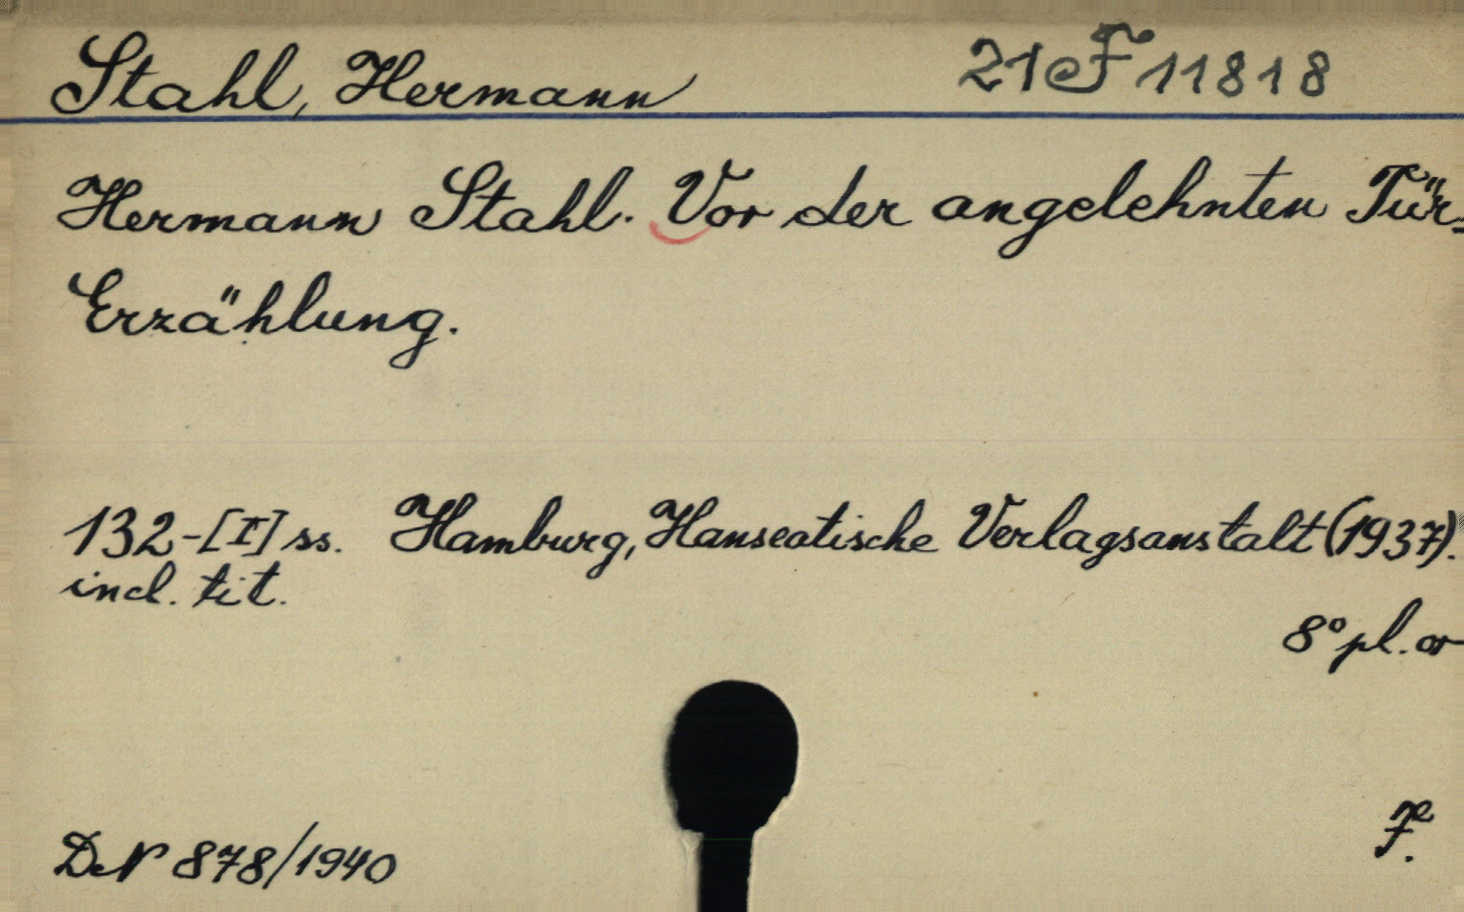 Stahl, Hermann 21 F 11818
Hermann Stahl. Vor der angelehnten Tür.
Erzählung.
132-[I] ss. Hamburg, Hanseatische Verlagsanstalt (1937).
incl. tit.
8° pl. or
F.
DeN 878/1940